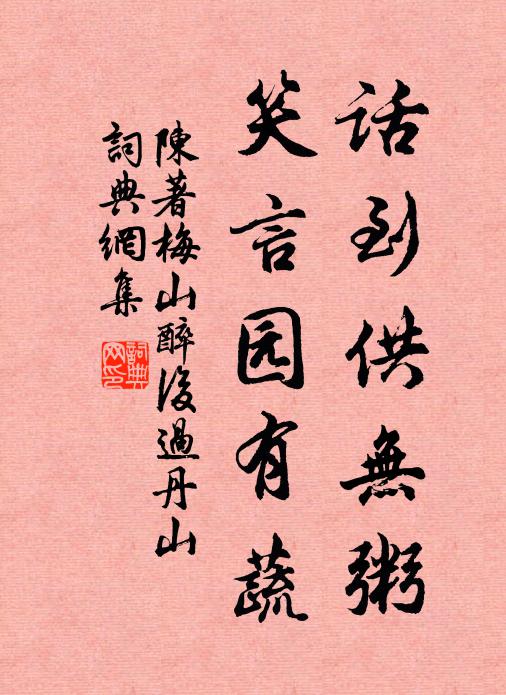 话到供無粥
笑言园有蔬
陳著梅山醉後過丹山
詞典網集
詞典网印